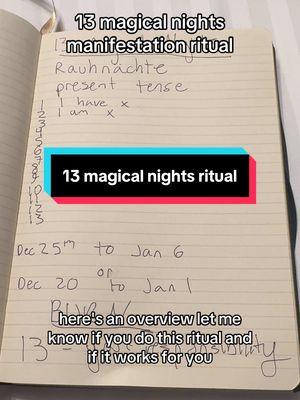 13 magical nights
manifestation ritual
Rauhnächte
present tense
1 I have x
2 I am x
3
4
5
6
7
8
9
10
11
12
13
13 magical nights ritual
Dec 25th to Jan 6
or
Dec 20 to Jan 1
BURN
here's an overview let me
know if you do this ritual and
if it works for you
13 -